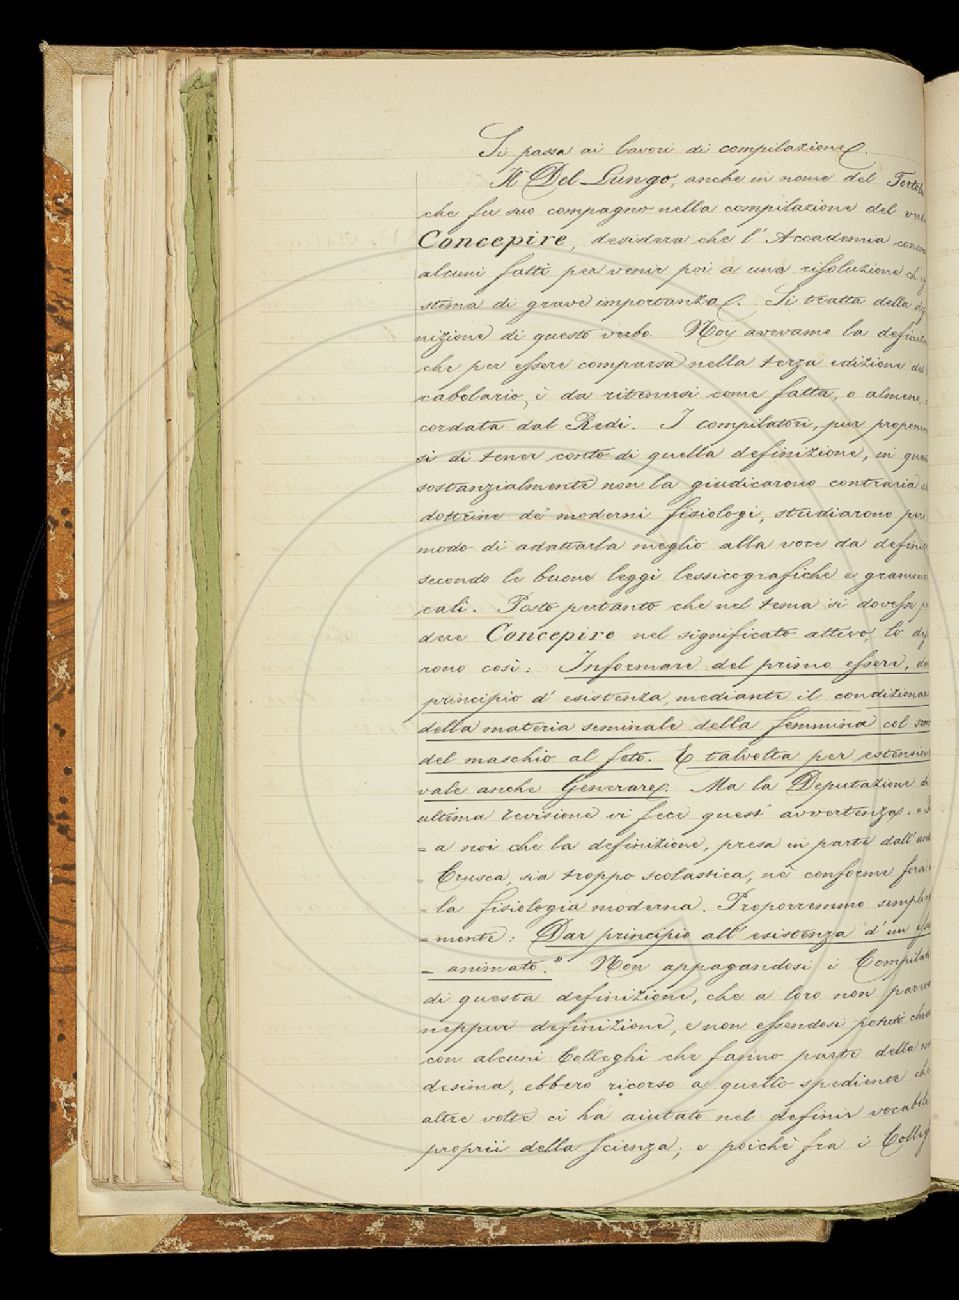 Si passa ai lavori di compilazione.
Il Del Lungo, anche in nome del
che fu suo compagno nella compilazione del
Concepire, desidera che l' Accademia
alcuni fatti per venir poi a una risoluzione
stima di grave importanza. Si tratta della
nizione di questo verbo. Noi avevamo la
che per essere comparsa nella terza edizione
cabolario, è da ritenersi come fatta, o almeno,
cordata dal Redi. I compilatori, pur
si di tener conto di quella definizione, in
sostanzialmente non la giudicarono contraria
dottrine de' moderni fisiologi, studiarono
modo di adattarla meglio alla voce da
secondo le buone leggi lessicografiche e
cali. Posto pertanto che nel tema si dovesse
dere Concepire nel significato attivo, lo
rono così: Informare del primo essere,
principio d' esistenza, mediante il
della materia seminale della femmina col
del maschio al feto. E talvolta per
vale anche Generare. Ma la Deputazione
ultima revisione vi fece quest' avvertenza:
= a noi che la definizione, presa in parte dall'
= Crusca, sia troppo scolastica, nè conforme
= la fisiologia moderna. Proporremmo
= mente: Dar principio all' esistenza d' un
= animato." Non appagandosi i
di questa definizione, che a loro non
neppur definizione, e non essendosi potuti
con alcuni Colleghi che fanno parte della
desima, ebbero ricorso a quello spediente
altre volte ci ha aiutato nel definir
proprii della scienza; e poichè fra i